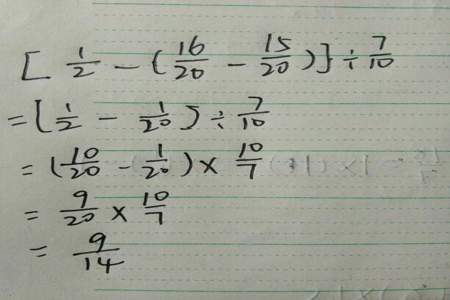 [ 1/2 - ( 16/20 - 15/20 ) ] ÷ 7/10
= [ 1/2 - 1/20 ] ÷ 7/10
= ( 10/20 - 1/20 ) × 10/7
= 9/20 × 10/7
= 9/14